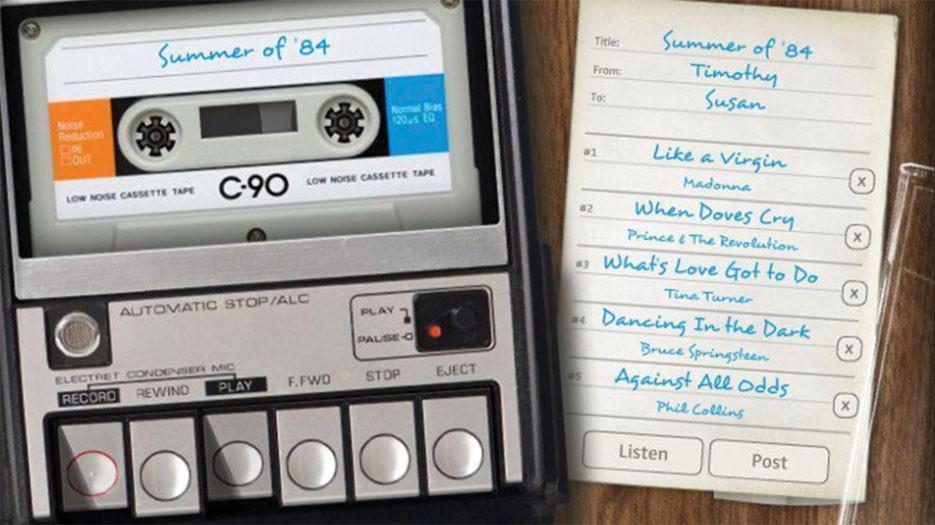 Summer of '84
Noise
Reduction
IN
OUT
Normal Bias
120µs EQ
LOW NOISE CASSETTE TAPE
C-90
LOW NOISE CASSETTE TAPE
AUTOMATIC STOP/ALC
PLAY
PAUSE
ELECTRET CONDENSER MIC
RECORD
REWIND
PLAY
F.FWD
STOP
EJECT
Title: Summer of '84
From: Timothy
To: Susan
#1 Like a Virgin
Madonna
X
#2 When Doves Cry
Prince & The Revolution
X
#3 What's Love Got to Do
Tina Turner
X
#4 Dancing In the Dark
Bruce Springsteen
X
#5 Against All Odds
Phil Collins
X
Listen
Post